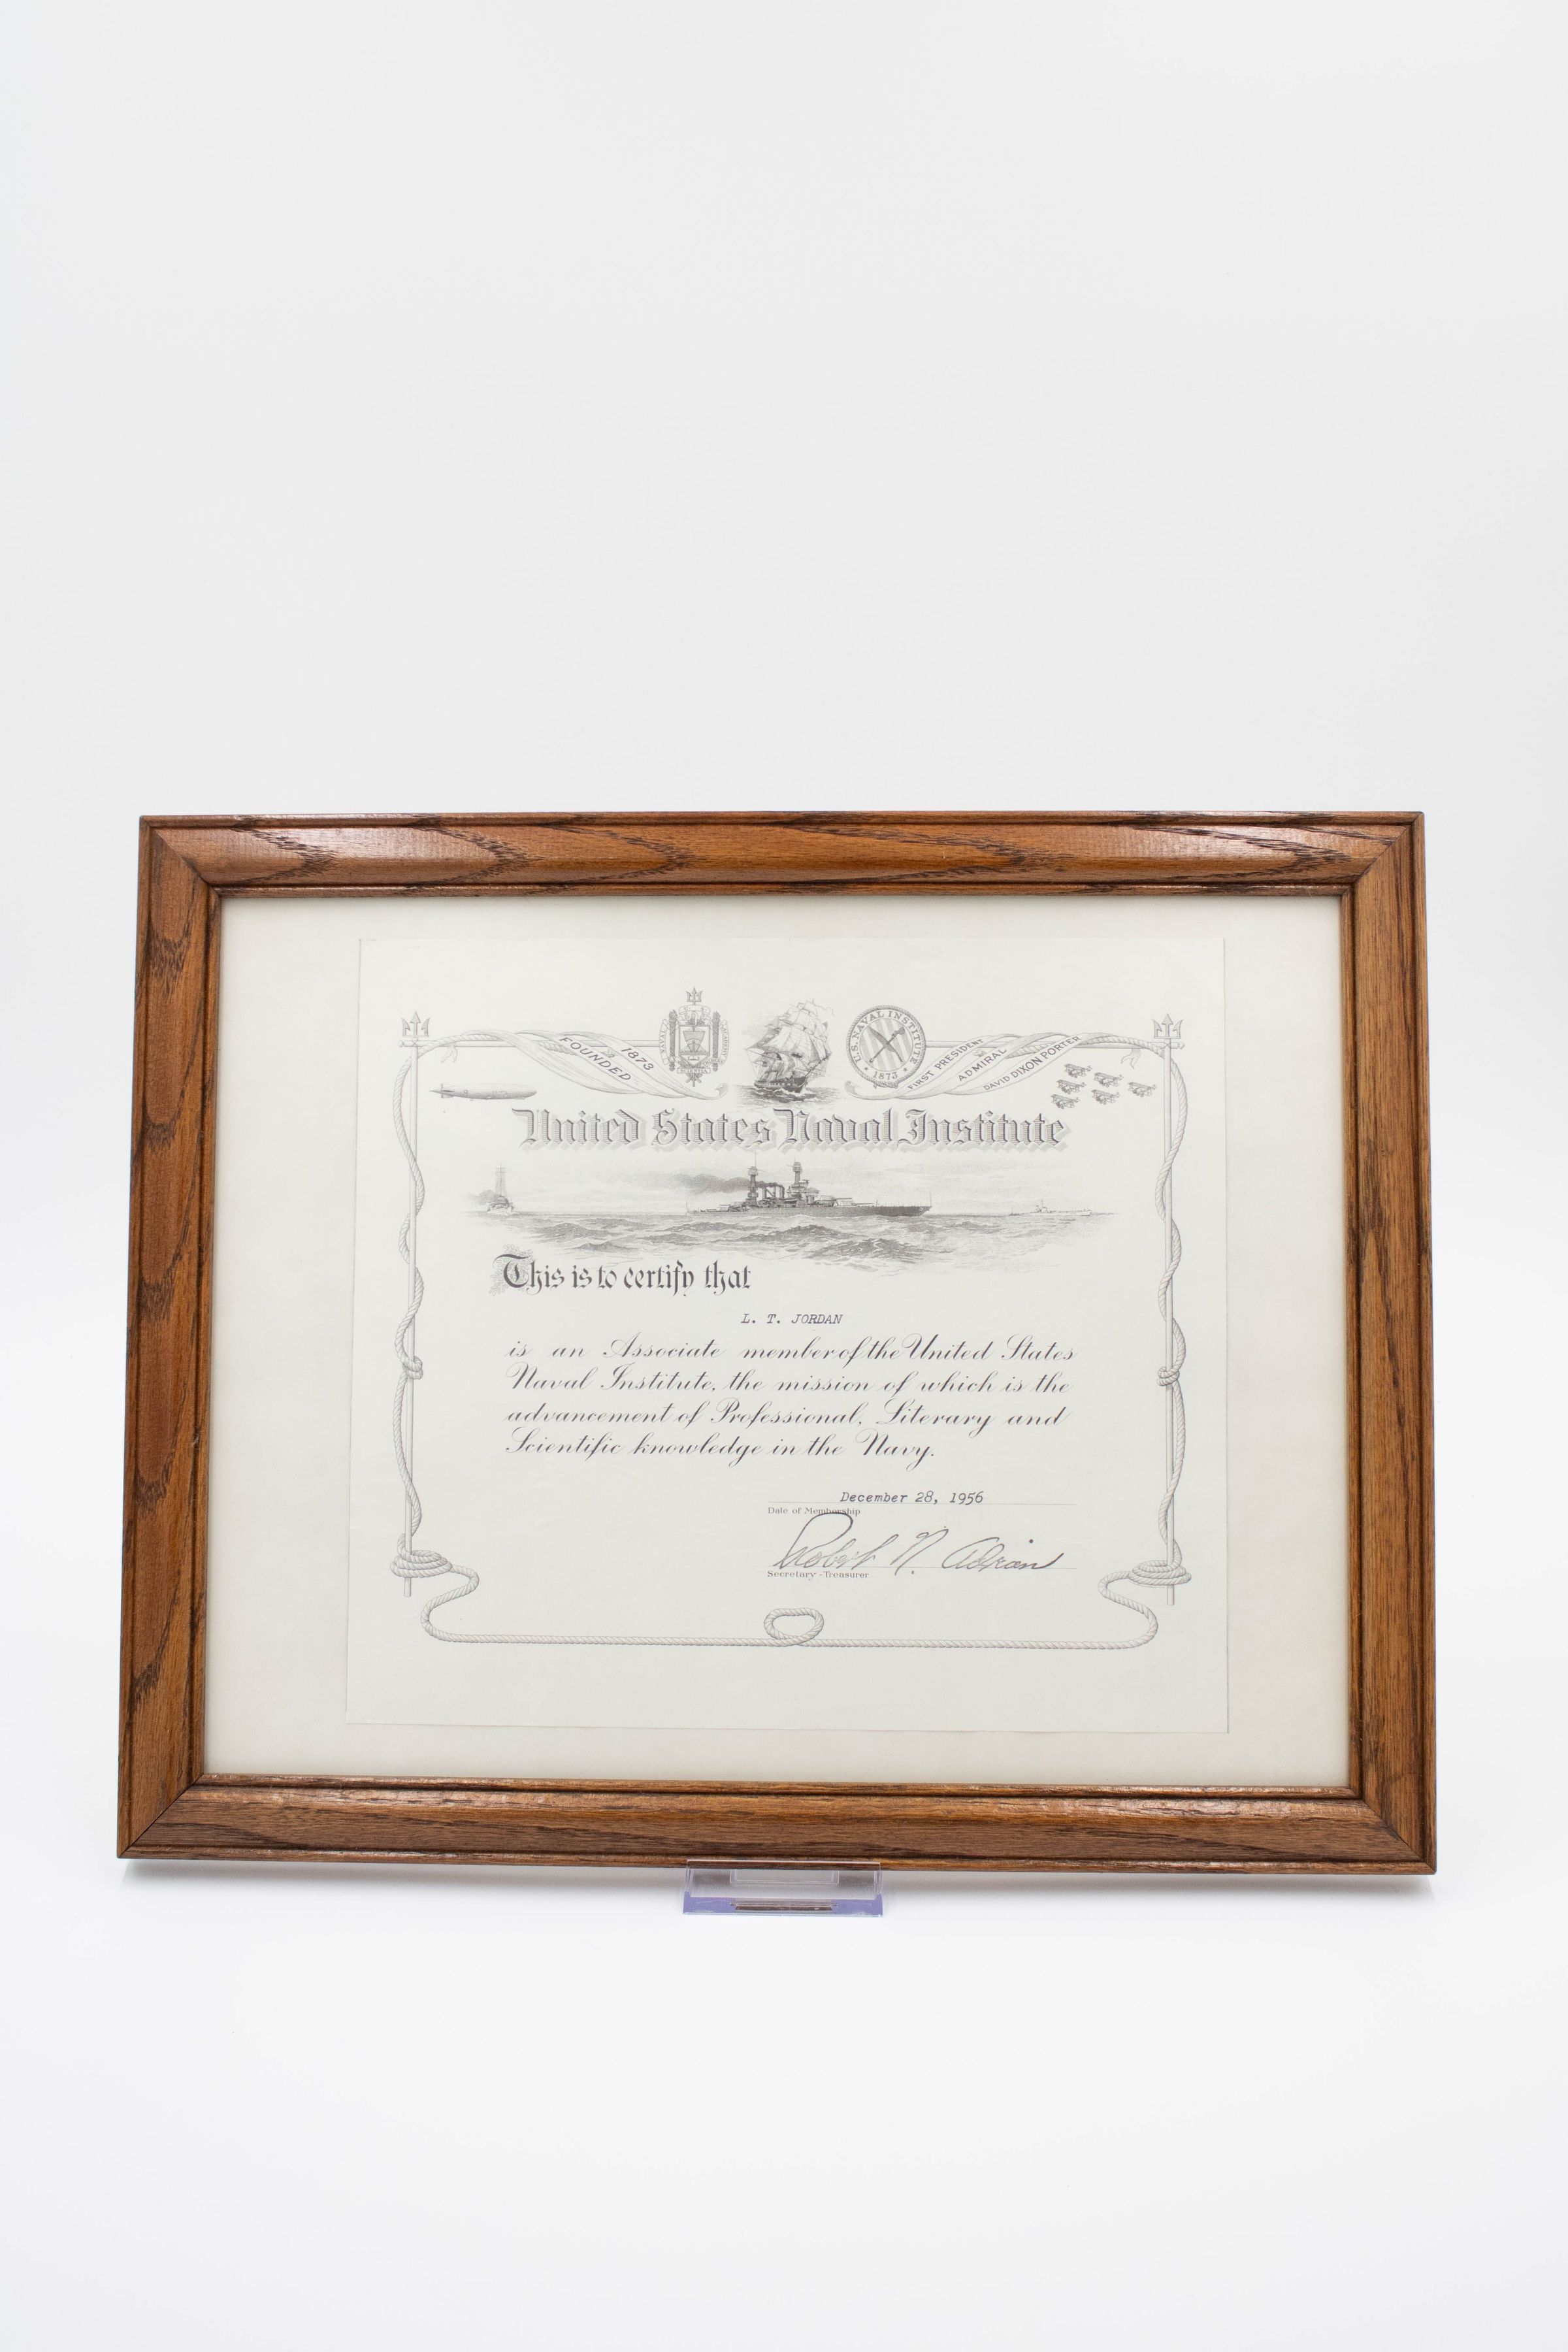 FOUNDED 1873
U.S. NAVAL INSTITUTE
1873
FIRST PRESIDENT
ADMIRAL
DAVID DIXON PORTER
United States Naval Institute
This is to certify that
L. T. JORDAN
is an Associate member of the United States
Naval Institute, the mission of which is the
advancement of Professional, Literary and
Scientific knowledge in the Navy.
December 28, 1956
Date of Membership
Robert N. Adrian
Secretary-Treasurer